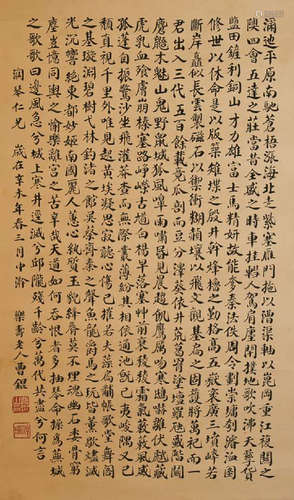 瀰迆平原南馳蒼梧漲海北走紫塞雁門拖以漕渠軸以崑岡重江複關之
隩四會五達之莊當昔全盛之時車挂轊人駕肩廛閈撲地歌吹沸天孳貨
鹽田鏟利銅山才力雄富士馬精妍故能奓秦法佚周令劃崇墉刳濬洫圖
修世以休命是以版築雉堞之殷井幹烽櫓之勤格高五嶽袤廣三墳崪若
斷岸矗似長雲製磁石以禦衝糊赬壤以飛文觀基扃之固護將萬祀而一
君出入三代五百餘載竟瓜剖而豆分澤葵依井荒葛罥塗壇羅虺蜮階鬬
麏鼯木魅山鬼野鼠城狐風嗥雨嘯昏見晨趨飢鷹厲吻寒鴟嚇雛伏虣藏
虎乳血飧膚崩榛塞路崢嶸古馗白楊早落塞草前衰稜稜霜氣蔌蔌風威
孤蓬自振驚沙坐飛灌莽杳而無際叢薄紛其相依通池既已夷峻隅又已
頹直視千里外唯見起黃埃凝思寂聽心傷已摧若夫藻扃黼帳歌堂舞閣
之基璇淵碧樹弋林釣渚之館吳蔡齊秦之聲魚龍爵馬之玩皆薰歇燼滅
光沉響絕東都妙姬南國麗人蕙心紈質玉貌絳脣莫不埋魂幽石委骨窮
塵豈憶同輿之愉樂離宮之苦辛哉天道如何吞恨者多抽琴命操爲蕪城
之歌歌曰邊風急兮城上寒井逕滅兮邱隴殘千齡兮萬代共盡兮何言
潤琴仁兄 歲在辛未年春三月中澣 樂壽老人曹錕